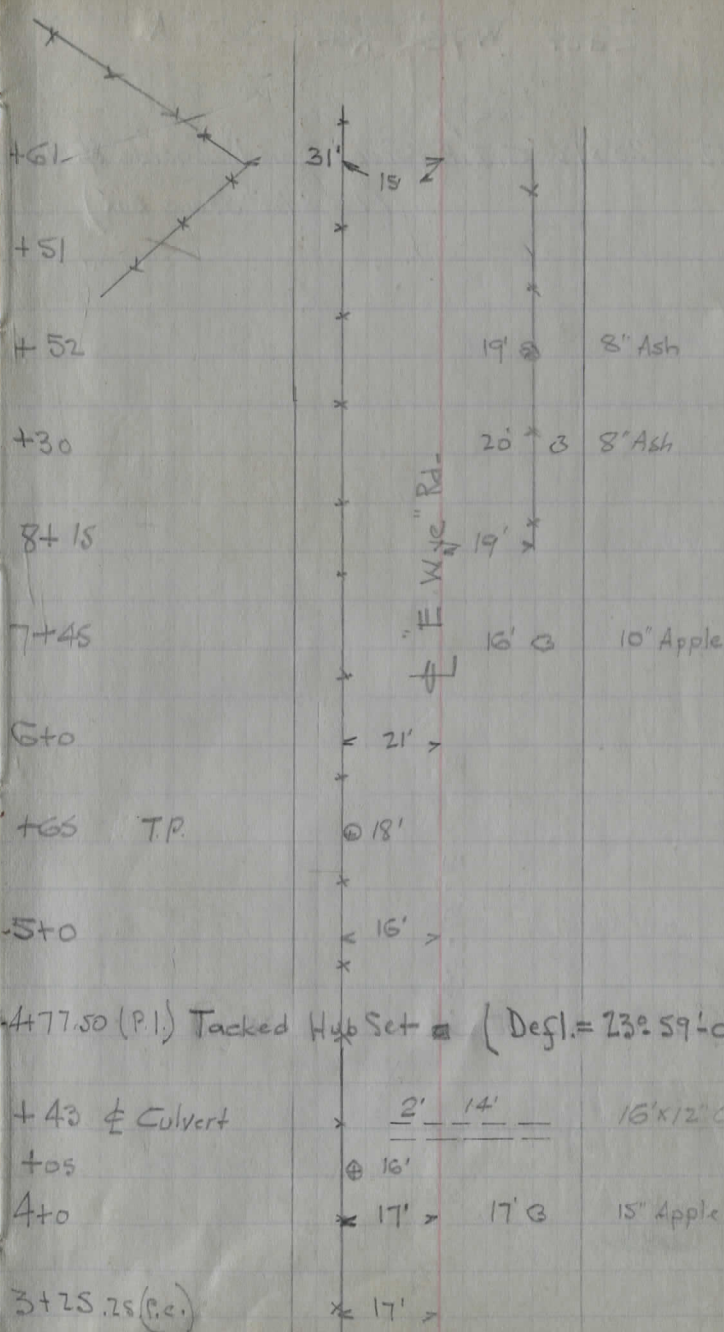 +61 31' 15
+51
+52 19' 8" Ash
+30 20' 8" Ash
8+15 19'
"E Wye" Rd.
7+45 16' 10" Apple
6+0 21'
+65 T.P. 18'
5+0 16'
4+77.50 (P.I.) Tacked Hub Set (Defl. = 23° 59'
+43 ℄ Culvert 2' 14' 16'x12"
+05 16'
4+0 17' 17' 15" Apple
3+25.25 (P.C.) 17'